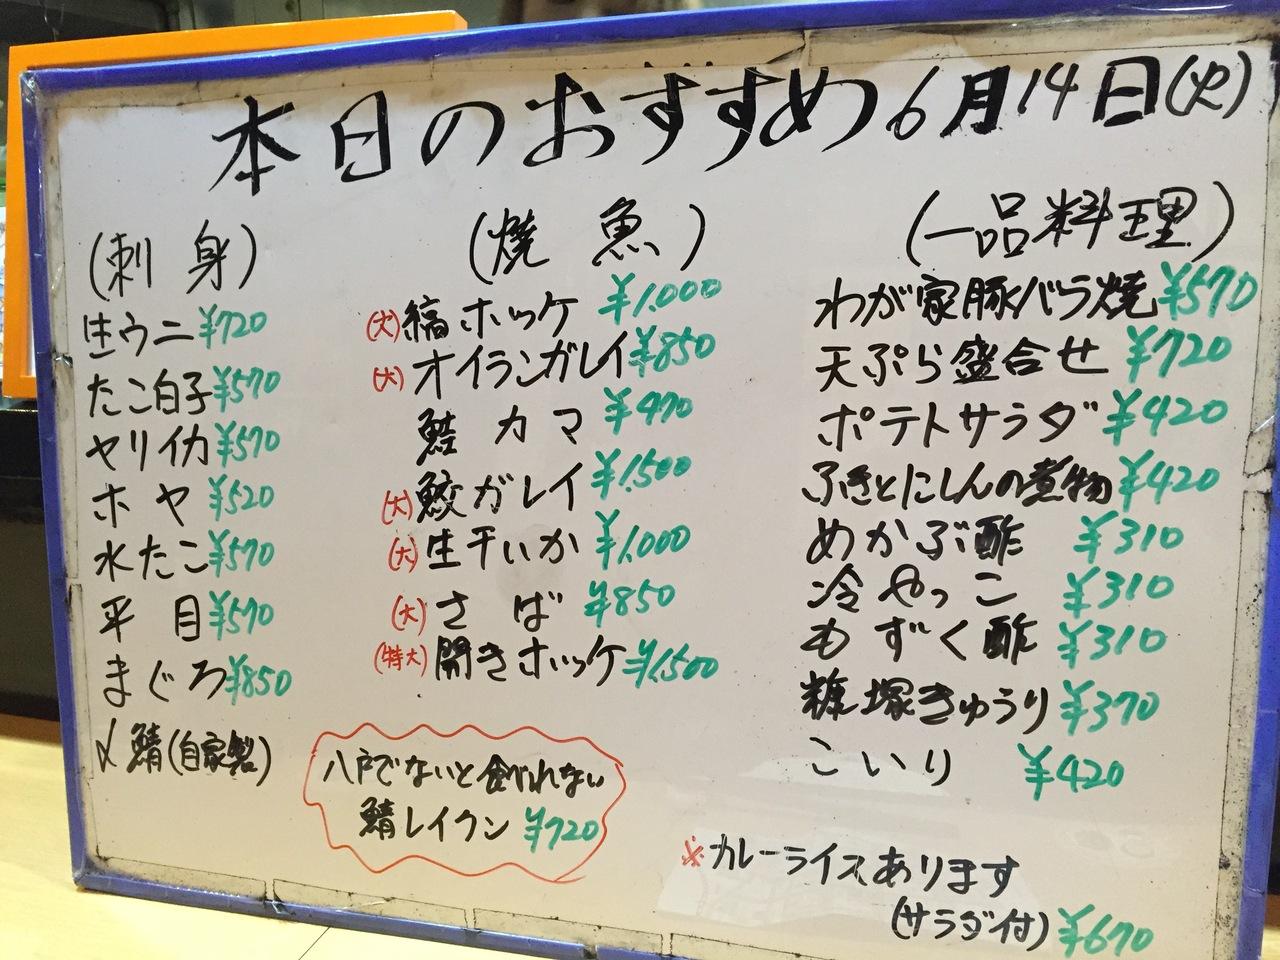 本日のおすすめ 6月14日(火)
(刺身)
生ウニ ¥720
たこ白子 ¥570
ヤリイカ ¥570
ホヤ ¥520
水たこ ¥570
平目 ¥570
まぐろ ¥850
〆鯖(自家製)
(焼魚)
(大)縞ホッケ ¥1.000
(大)オイランガレイ ¥850
鮭カマ ¥470
(大)鮫ガレイ ¥1.500
(大)生干いか ¥1.000
(大)さば ¥850
(特大)開きホッケ ¥1.500
八戸でないと食べれない
鯖レイクン ¥720
(一品料理)
わが家豚バラ焼 ¥570
天ぷら盛合せ ¥720
ポテトサラダ ¥420
ふきとにしんの煮物 ¥420
めかぶ酢 ¥310
冷やっこ ¥310
もずく酢 ¥310
糠塚きゅうり ¥370
こいり ¥420
※カレーライスあります
(サラダ付) ¥670